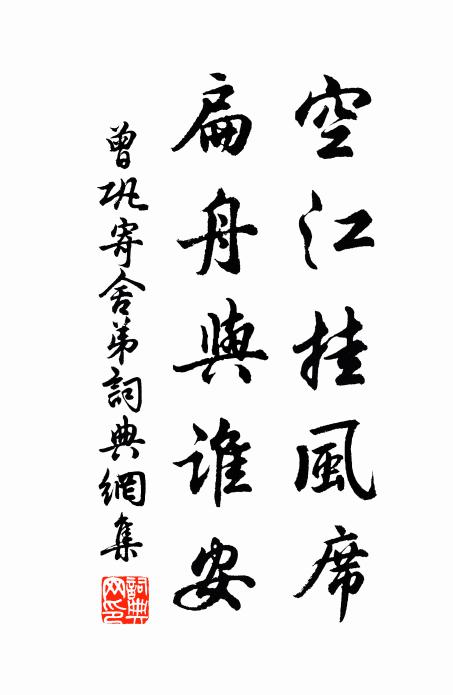 空江挂風席
扁舟與誰安
曾巩寄舍弟詞典網集
詞典網印